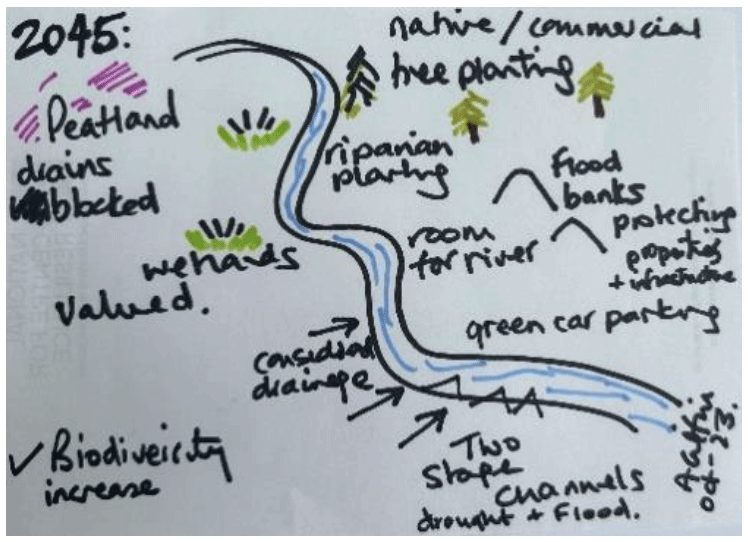 2045:
native / commercial
tree planting
Peatland
drains
blocked
riparian
planting
Flood
banks
protecting
properties
+ infrastructure
room
for river
wetlands
valued.
green car parking
considered
drainage
✓ Biodivericity
increase
Two
stage
channels
drought + Flood.
04-23.